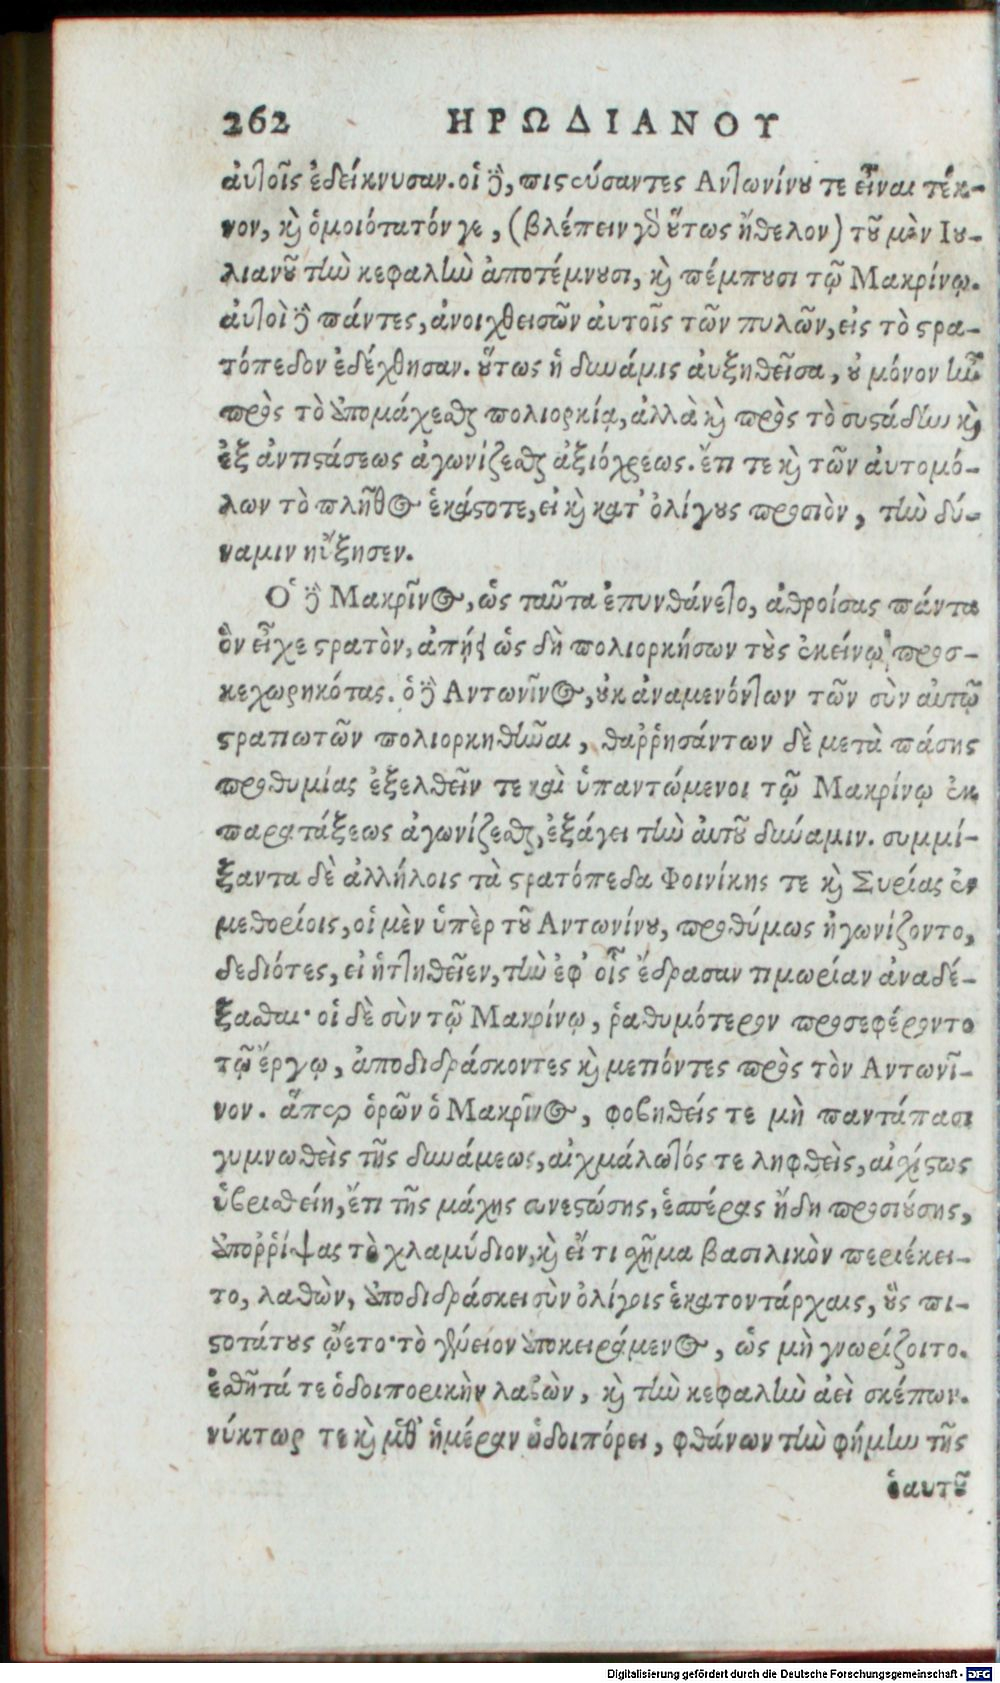 262 ΗΡΩΔΙΑΝΟΥ
αὐτοῖς ἐδείκνυσαν. οἱ δὲ, πιστεύσαντες Αντωνίνου τε εἶναι τέκ-
νον, καὶ ὁμοιότατόν γε, (βλέπειν γὰρ οὕτως ἤθελον) τοῦ μὲν Ιου-
λιανοῦ τὴν κεφαλὴν ἀποτέμνουσι, καὶ πέμπουσι τῷ Μακρίνῳ.
αὐτοὶ δὲ πάντες, ἀνοιχθεισῶν αὐτοῖς τῶν πυλῶν, εἰς τὸ στρα-
τόπεδον ἐδέχθησαν. οὕτως ἡ δυνάμις αὐξηθεῖσα, οὐ μόνον ἦν
πρὸς τὸ ἀπομάχεσθαι πολιορκίᾳ, ἀλλὰ καὶ πρὸς τὸ συστάδην καὶ
ἐξ ἀντιστάσεως ἀγωνίζεσθαι ἀξιόχρεως. ἔτι τε καὶ τῶν αὐτομό-
λων τὸ πλῆθος ἑκάστοτε, εἰ καὶ κατ' ὀλίγους προσιὸν, τὴν δύ-
ναμιν ηὔξησεν.
Ὁ δὲ Μακρῖνος, ὡς ταῦτα ἐπυνθάνετο, ἀθροίσας πάντα
ὃν εἶχε στρατὸν, ἀπῄει ὡς δὴ πολιορκήσων τοὺς ἐκείνῳ προσ-
κεχωρηκότας. ὁ δὲ Αντωνῖνος, οὐκ ἀναμενόντων τῶν σὺν αὐτῷ
στρατιωτῶν πολιορκηθῆναι, θαῤῥησάντων δὲ μετὰ πάσης
προθυμίας ἐξελθεῖν τε καὶ ὑπαντώμενοι τῷ Μακρίνῳ ἐκ
παρατάξεως ἀγωνίζεσθαι, ἐξάγει τὴν αὐτοῦ δυνάμιν. συμμί-
ξαντα δὲ ἀλλήλοις τὰ στρατόπεδα Φοινίκης τε καὶ Συρίας ἐν
μεθορίοις, οἱ μὲν ὑπὲρ τοῦ Αντωνίνου, προθύμως ἠγωνίζοντο,
δεδιότες, εἰ ἡττηθεῖεν, τὴν ἐφ' οἷς ἔδρασαν τιμωρίαν ἀναδέ-
ξασθαι· οἱ δὲ σὺν τῷ Μακρίνῳ, ῥαθυμότερον προσεφέροντο
τῷ ἔργῳ, ἀποδιδράσκοντες καὶ μετιόντες πρὸς τὸν Αντωνῖ-
νον. ἅπερ ὁρῶν ὁ Μακρῖνος, φοβηθείς τε μὴ παντάπασι
γυμνωθεὶς τῆς δυνάμεως, αἰχμάλωτός τε ληφθεὶς, αἰσχίστως
ὑβρισθείη, ἔτι τῆς μάχης συνεστώσης, ἑσπέρας ἤδη προσιούσης,
ἀποῤῥίψας τὸ χλαμύδιον, καὶ εἴ τι σχῆμα βασιλικὸν περιέκει-
το, λαθὼν, ἀποδιδράσκει σὺν ὀλίγοις ἑκατοντάρχαις, οὓς πι-
στοτάτους ᾤετο· τὸ γένειον ἀποκειράμενος, ὡς μὴ γνωρίζοιτο.
ἐσθῆτά τε ὁδοιπορικὴν λαβὼν, καὶ τὴν κεφαλὴν ἀεὶ σκέπων.
νύκτωρ τε καὶ μεθ' ἡμέραν ὡδοιπόρει, φθάνων τὴν φήμην τῆς
ἑαυτοῦ
Digitalisierung gefördert durch die Deutsche Forschungsgemeinschaft - DFG